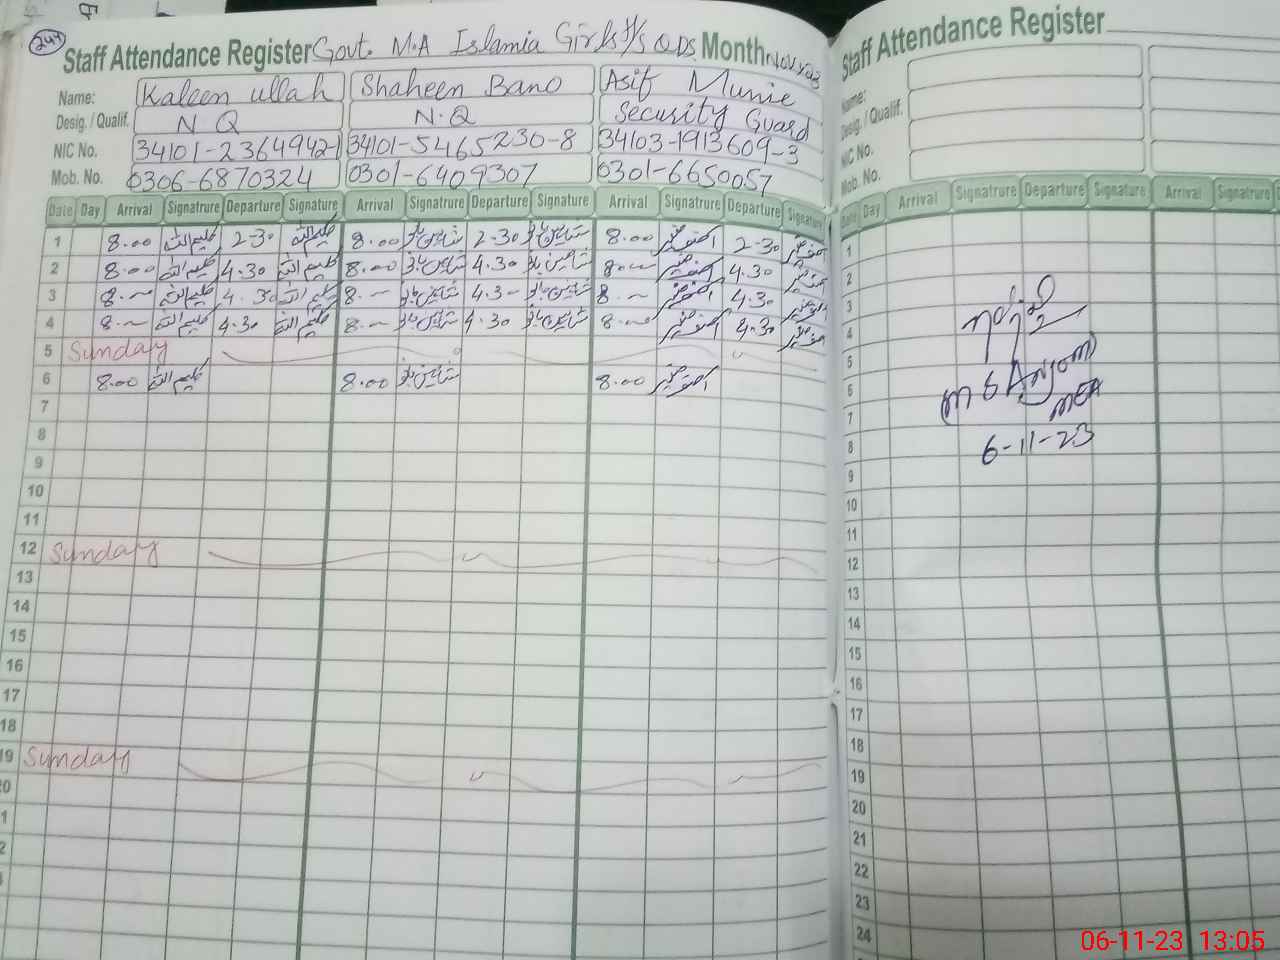 244
Staff Attendance Register Govt. M.A Islamia Girls H/S Q.D.S. Month Nov
Name: Kaleem ullah Shaheen Bano Asif Munir
Desig. / Qualif. N Q N.Q Security Guard
NIC No. 34101-2364942-1 34101-5465230-8 34103-1913609-3
Mob. No. 0306-6870324 0301-6409307 0301-6650057
Date Day Arrival Signatrure Departure Signature Arrival Signatrure Departure Signature Arrival Signatrure Departure Signature
1 8.00 کلیم اللہ 2-30 کلیم اللہ 8.00 شاہین بانو 2-30 شاہین بانو 8.00 آصف منیر 2-30 آصف منیر
2 8.00 کلیم اللہ 4.30 کلیم اللہ 8.00 شاہین بانو 4.30 شاہین بانو 8.00 آصف منیر 4.30 آصف منیر
3 8.00 کلیم اللہ 4.30 کلیم اللہ 8.00 شاہین بانو 4.30 شاہین بانو 8.00 آصف منیر 4.30 آصف منیر
4 8.00 کلیم اللہ 4.30 کلیم اللہ 8.00 شاہین بانو 4.30 شاہین بانو 8.00 آصف منیر 4.30 آصف منیر
5 Sunday
6 8.00 کلیم اللہ 8.00 شاہین بانو 8.00 آصف منیر
7
8
9
10
11
12 Sunday
13
14
15
16
17
18
19 Sunday
Staff Attendance Register
Name:
Desig. / Qualif.
NIC No.
Mob. No.
Date Day Arrival Signatrure Departure Signature Arrival Signatrure
1
2
3
4
5
6
7 MEA
8 6-11-23
9
10
11
12
13
14
15
16
17
18
19
20
21
22
23
24
06-11-23 13:05